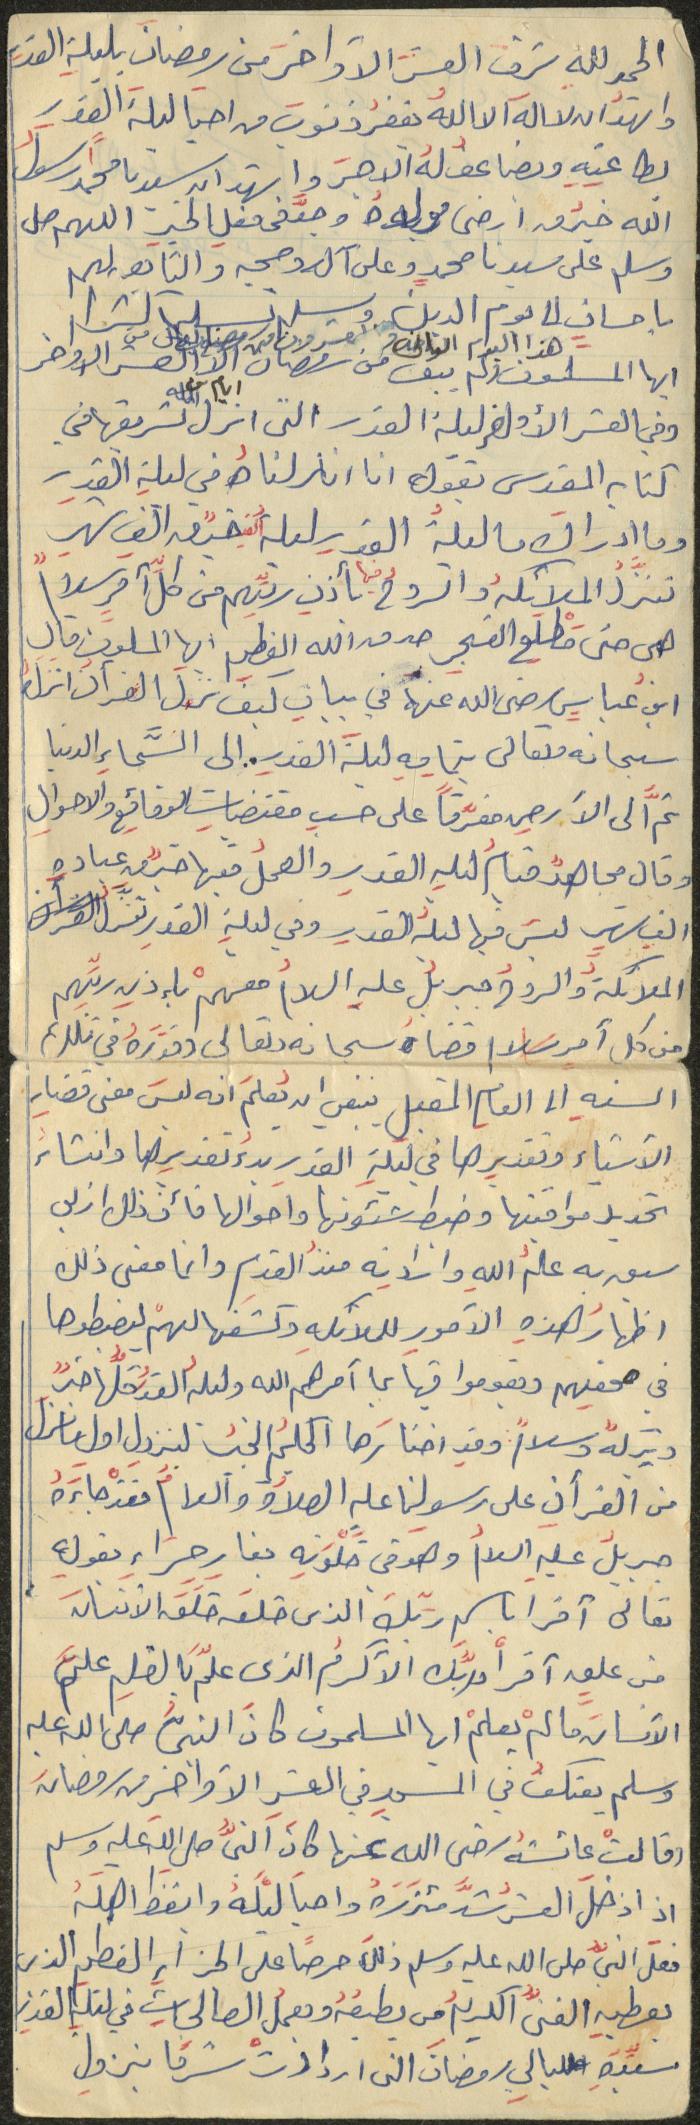 الحمد لله شرف العشر الأواخر من رمضان بليلة القدر
واشهد ان لا اله الا الله يغفر ذنوب من احيا ليلة القدر
بطاعته ويضاعف له الاجر واشهد ان سيدنا محمدا رسول
الله خير من ارضى مولاه وحث على فعل الخير اللهم صل
وسلم على سيدنا محمد وعلى آله وصحبه والتابعين لهم
باحسان الى يوم الدين وسلم تسليما كثيرا
هذا اليوم
ايها المسلمون لم يبق من رمضان الا العشر الاواخر
ايام
وفي العشر الأواخر ليلة القدر التى انزل تشريفها في
كتابه المقدس بقوله انا انزلناه في ليلة القدر
وما ادراك ما ليلة القدر ليلة القدر خير من الف شهر
تنزل الملائكة والروح فيها بأذن ربهم من كل أمر سلام
هى حتى مطلع الفجر صدق الله العظيم ايها المسلمون قال
ابن عباس رضى الله عنهما في بيان كيف نزل القرآن انزله
سبحانه وتعالى بتمامه ليلة القدر الى السماء الدنيا
ثم الى الأرض مفرقا على حسب مقتضيات الوقائع والاحوال
وقال مجاهد قيام ليلة القدر والعمل فيها خير من عبادة
الف شهر ليس فيها ليلة القدر وفي ليلة القدر تنزل القرآن
الملائكة والروح جبريل عليه السلام معهم بإذن ربهم
من كل أمر سلام قضاه سبحانه وتعالى وقدره في تلك
السنة الى العام المقبل ينبغي ان يعلم انه ليس معنى قضاء
الأشياء وتقديرها في ليلة القدر بدء تقديرها وانشاء
تحديد مواقيتها وضبط شئونها واحوالها فأن ذلك ازلى
سبق به علم الله وارادته منذ القدم وانما معنى ذلك
اظهار هذه الأمور للملائكة وكشفها لهم ليضبطوها
في صحفهم ويقوموا فيها بما أمرهم الله وليلة القدر كلها خير
وبركة وسلام وقد اختارها الحكيم الخبير لنزول اول ما نزل
من القرآن على رسولنا عليه الصلاة والسلام فقد جاءه
جبريل عليه السلام وهو في خلوته بغار حراء بقوله
تعالى أقرا باسم ربك الذى خلق خلق الانسان
من علق أقرأ وربك الأكرم الذى علم بالقلم علم
الأنسان ما لم يعلم ايها المسلمون كان النبى صلى الله عليه
وسلم يعتكف في المسجد في العشر الأواخر من رمضان
وقالت عائشة رضى الله عنها كان النبى صلى الله عليه وسلم
اذا دخل العشر شد مئزره واحيا ليله وايقظ اهله
فعل النبى صلى الله عليه وسلم ذلك حرصا على الجزاء العظيم الذى
يعطيه الغنى الكريم من يطيعه ويعمل الصالحات في ليلة القدر
سيدة ليالي رمضان التى ازدادت شرفا بنزول